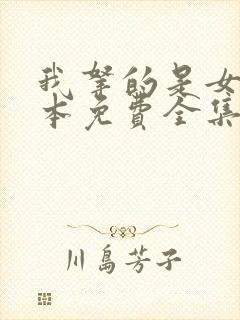 我拏的是女
本免费全集
川島芳子